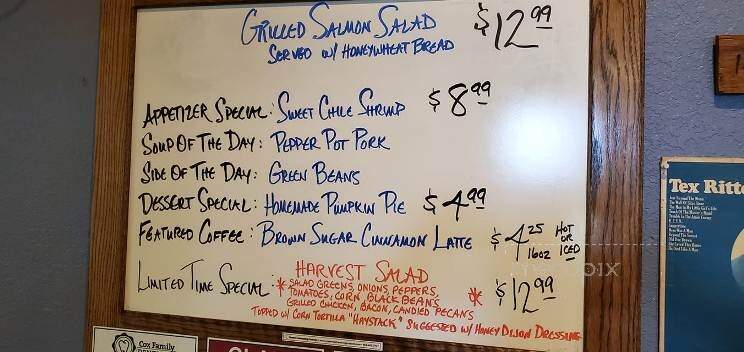 GRILLED SALMON SALAD $12.99
SERVED W/ HONEYWHEAT BREAD
APPETIZER SPECIAL: SWEET CHILE SHRIMP $8.99
SOUP OF THE DAY: PEPPER POT PORK
SIDE OF THE DAY: GREEN BEANS
DESSERT SPECIAL: HOMEMADE PUMPKIN PIE $4.99
FEATURED COFFEE: BROWN SUGAR CINNAMON LATTE $4.25 16OZ HOT OR ICED
LIMITED TIME SPECIAL: HARVEST SALAD $12.99
* SALAD GREENS, ONIONS, PEPPERS,
TOMATOES, CORN, BLACK BEANS *
GRILLED CHICKEN, BACON, CANDIED PECANS
TOPPED W/ CORN TORTILLA "HAYSTACK" SUGGESTED W/ HONEY DIJON DRESSING
Cox Family
Tex Ritte